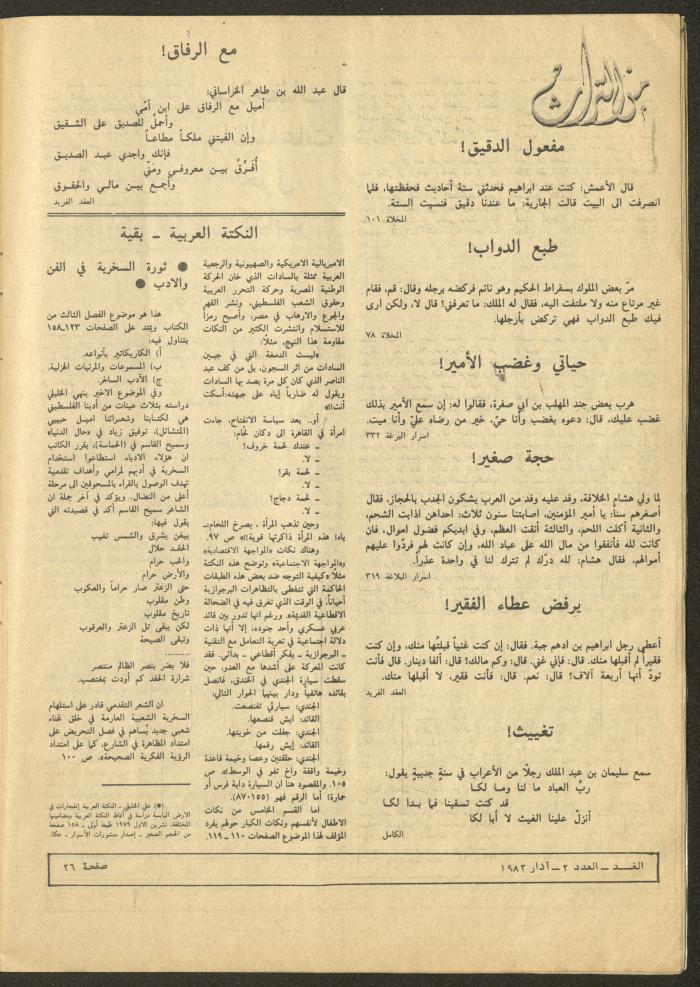 من التراث
مفعول الدقيق!
قال الأعمش: كنت عند ابراهيم فحدثني ستة أحاديث فحفظتها، فلما
انصرفت الى البيت قالت الجارية: ما عندنا دقيق فنسيت الستة.
المخلاة ١٠١
طبع الدواب!
مرّ بعض الملوك بسقراط الحكيم وهو نائم فركضه برجله وقال: قم، فقام
غير مرتاع منه ولا ملتفت اليه، فقال له الملك: ما تعرفني؟ قال لا، ولكن ارى
فيك طبع الدواب فهي تركض بأرجلها.
المخلاة ٧٨
حياتي وغضب الأمير!
هرب بعض جند المهلب بن ابي صفرة، فقالوا له: إن سمع الأمير بذلك
غضب عليك، قال: دعوه يغضب وأنا حيّ، خير من رضاه عليّ وأنا ميت.
اسرار البزغة ٣٣٢
حجة صغير!
لما ولي هشام الخلافة، وفد عليه وفد من العرب يشكون الجدب بالحجاز، فقال
أصغرهم سناً: يا أمير المؤمنين، اصابتنا سنون ثلاث: احداهن اذابت الشحم،
والثانية أكلت اللحم، والثالثة أنقت العظم، وفي ايديكم فضول اموال، فان
كانت لله فأنفقوا من مال الله على عباد الله، وإن كانت لهم فردّوا عليهم
أموالهم، فقال هشام: لله درّك لم تترك لنا في واحدة عذراً.
اسرار البلاغة ٣١٩
يرفض عطاء الفقير!
أعطى رجل ابراهيم بن ادهم جبة. فقال: إن كنت غنياً قبلتُها منك، وإن كنت
فقيراً لم أقبلها منك. قال: فإني غني. قال: وكم مالك؟ قال: ألفا دينار. قال فأنت
تودّ أنها أربعة آلاف؟ قال: نعم. قال: فأنت فقير، لا أقبلها منك.
العقد الفريد
تغييث!
سمع سليمان بن عبد الملك رجلًا من الأعراب في سنةٍ جديبةٍ يقول:
ربُّ العباد ما لنا وما لكا
قد كنت تسقينا فما بدا لكا
أنزلْ علينا الغيث لا أبا لكا
الكامل
مع الرفاق!
قال عبد الله بن طاهر الخراساني:
أميل مع الرفاق على ابن أمّي
وأحملُ للصديق على الشقيق
وإن الفيتني ملكاً مطاعاً
فإنك واجدي عبد الصديق
أُفَرِّقُ بين معروفي ومَنّي
وأجمع بين مالي والحقوق
العقد الفريد
النكتة العربية ـ بقية
الامبريالية الامريكية والصهيونية والرجعية
العربية ممثلة بالسادات الذي خان الحركة
الوطنية المصرية وحركة التحرر العربية
وحقوق الشعب الفلسطيني، ونشر القهر
والجوع والارهاب في مصر، وأصبح رمزاً
للاستسلام وانتشرت الكثير من النكات
مقاومة هذا النهج، مثلًا:
«ليست الدمغة التي في جبين
السادات من اثر السجون، بل من كف عبد
الناصر الذي كان كل مرة يصد بها السادات
ويقول له ضارباً إياه على جبهته: أسكت
أنت!!»
أو.. بعد سياسة الانفتاح، جاءت
امرأة في القاهرة الى دكان لحام:
ـ عندك لحمة خروف؟
ـ لا.
ـ لحمة بقر؟
ـ لا.
ـ لحمة دجاج؟
ـ لا.
وحين تذهب المرأة . يصرخ اللحام:ـ
ياه! هذه المرأة ذاكرتها قوية!!» ص ٩٧.
وهناك نكات «المواجهة الاقتصادية»
و«المواجهة الاجتماعية» وتوضح هذه النكتة
مثلًا وكيفية التوجه ضد بعض هذه الطبقات
الحاكمة التي تتغطى بالتظاهرات البرجوازية
أحياناً، في الوقت الذي تغرق فيه في الضحالة
الاقطاعية القديمة». ورغم انها تدور بين قائد
عربي عسكري وأحد جنوده، إلا أنها ذات
دلالة اجتماعية في تعرية التعامل مع التقنية
ـ البرجوازية ـ بفكر أقطاعي ـ بدائي. فقد
كانت المعركة على أشدها مع العدو، حين
سقطت سيارة الجندي في الخندق، فاتصل
بقائده هاتفياً ودار بينهما الحوار التالي:
الجندي: سيارتي تغنصعت.
القائد: ايش فنصعها.
الجندي: جفلت من خويتها.
القائد: إيش رقمها.
الجندي: حلقتين وعصا وخيمة قاعدة
وخيمة واقفة واخ تفو في الوسط!». ص
١٠٥. والمقصود هنا ان السيارة دابة فرس أو
حمارة! أما الرقم فهو (٨٧٠١٥٥).
اما القسم الخامس من نكات
الاطفال لأنفسهم ونكات الكبار حولهم يفرد
المؤلف لهذا الموضوع الصفحات ١١٠ ـ ١١٩.
● ثورة السخرية في الفن
والادب ●
هذا هو موضوع الفصل الثالث من
الكتاب ويمتد على الصفحات ١٢٣ـ١٥٨
يتناول فيه:
أ) الكاريكاتير بأنواعه.
ب) المسموعات والمرئيات الهزلية.
ج) الأدب الساخر.
وفي الموضوع الاخير ينهي الخليلي
دراسته بثلاث عينات من أدبنا الفلسطيني
هي لكتابنا وشعرائنا اميل حبيبي
(المتشائل)، توفيق زياد في «حال الدنيا»
وسميح القاسم في (الحماسة)، يقرر الكاتب
ان هؤلاء الادباء استطاعوا استخدام
السخرية في أدبهم لمرامي وأهداف تقدمية
تهدف الوصول بالقراء بالمسحوقين الى مرحلة
أعلى من النضال. ويؤكد في آخر جملة ان
الشاعر سميح القاسم أكد في قصيدته التي
يقول فيها:
بيغن يشرق والشمس تغيب
الحقد حلال
والحب حرام
والأرض حرام
حتى الزعتر صار حراماً والعكوب
وطن مقلوب
تاريخ مقلوب
لكن يبقى تل الزعتر والعرقوب
وتبقى الصيحة
..........
فلا بضر بنصر الظالم منتصر
شرارة الحقد كم أودت بمغتصب.
ان الشعر التقدمي قادر على استلهام
السخرية الشعبية العارمة في خلق غناء
شعبي جديد يُساهم في فصل التحريض على
امتداد المظاهرة في الشارع، كما على امتداد
الرؤية الفكرية الصحيحة». ص ١٠٠
(●) علي الخليلي ـ النكتة العربية إنفجارات في
الارض اليابسة دراسة في أنماط النكتة العربية ومضامينها
المختلفة، تشرين الاول ١٩٧٩ طبعة أولى ـ ١٥٨ صفحة
من الحجم الصغير ـ إصدار منشورات الأسوار ـ عكا.
الغد ـ العدد ٢ ـ آذار ١٩٨٣
صفحة ٢٦